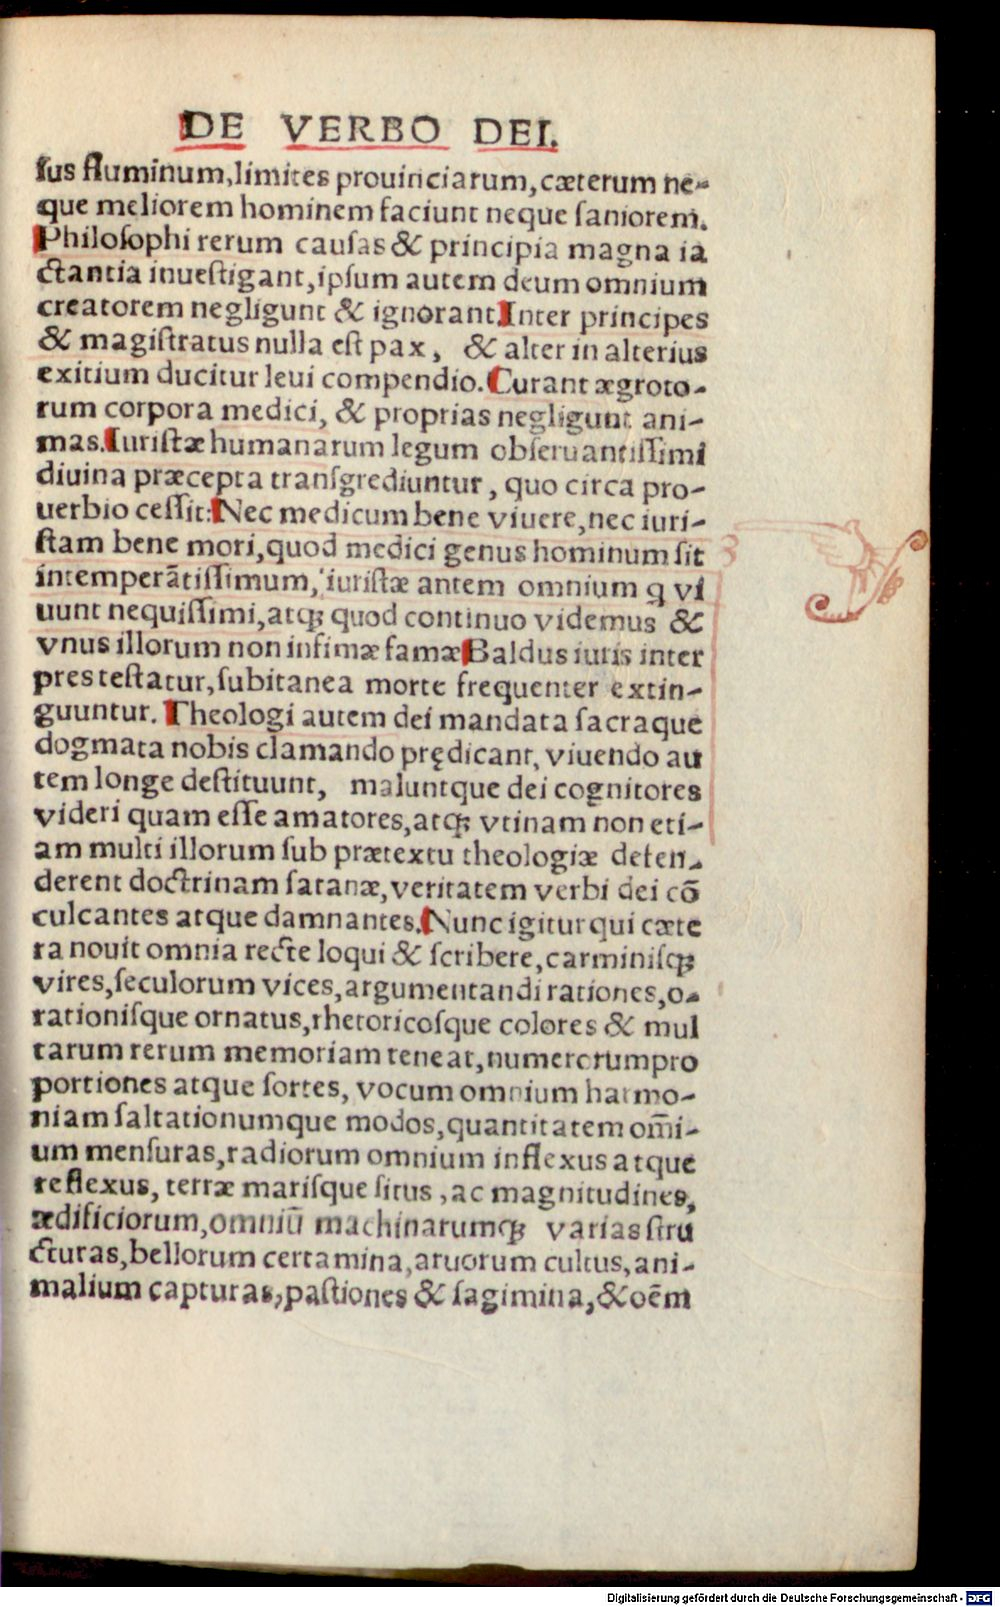 DE VERBO DEI.
ſus fluminum,limites prouinciarum,cæterum ne-
que meliorem hominem faciunt neque ſaniorem.
Philoſophi rerum cauſas & principia magna ia
ctantia inueſtigant,ipſum autem deum omnium
creatorem negligunt & ignorant.Inter principes
& magiſtratus nulla eſt pax, & alter in alterius
exitium ducitur leui compendio.Curant ægroto-
rum corpora medici, & proprias negligunt ani-
mas.Iuriſtæ humanarum legum obſeruantiſſimi
diuina præcepta tranſgrediuntur, quo circa pro-
uerbio ceſſit:Nec medicum bene viuere,nec iuri-
ſtam bene mori,quod medici genus hominum ſit
intemperãtiſſimum, iuriſtæ antem omnium q vi
uunt nequiſſimi,atqꝫ quod continuo videmus &
vnus illorum non infimæ famæ Baldus iuris inter
pres teſtatur,ſubitanea morte frequenter extin-
guuntur. Theologi autem dei mandata ſacraque
dogmata nobis clamando prędicant, viuendo au
tem longe deſtituunt, maluntque dei cognitores
videri quam eſſe amatores,atqꝫ vtinam non eti-
am multi illorum ſub prætextu theologiæ defen-
derent doctrinam ſatanæ,veritatem verbi dei cõ
culcantes atque damnantes.Nunc igitur qui cæte
ra nouit omnia recte loqui & ſcribere,carminiſqꝫ
vires,ſeculorum vices,argumentandi rationes,o-
rationiſque ornatus,rhetoricoſque colores & mul
tarum rerum memoriam teneat,numerorum pro
portiones atque ſortes, vocum omnium harmo-
niam ſaltationumque modos,quantitatem om̃i-
um menſuras,radiorum omnium inflexus atque
reflexus, terræ mariſque ſitus, ac magnitudines,
ædificiorum,omniũ machinarumqꝫ varias ſtru
cturas,bellorum certamina,aruorum cultus,ani-
malium capturas,paſtiones & ſagimina,& oẽm
Digitalisierung gefördert durch die Deutsche Forschungsgemeinschaft - DFG